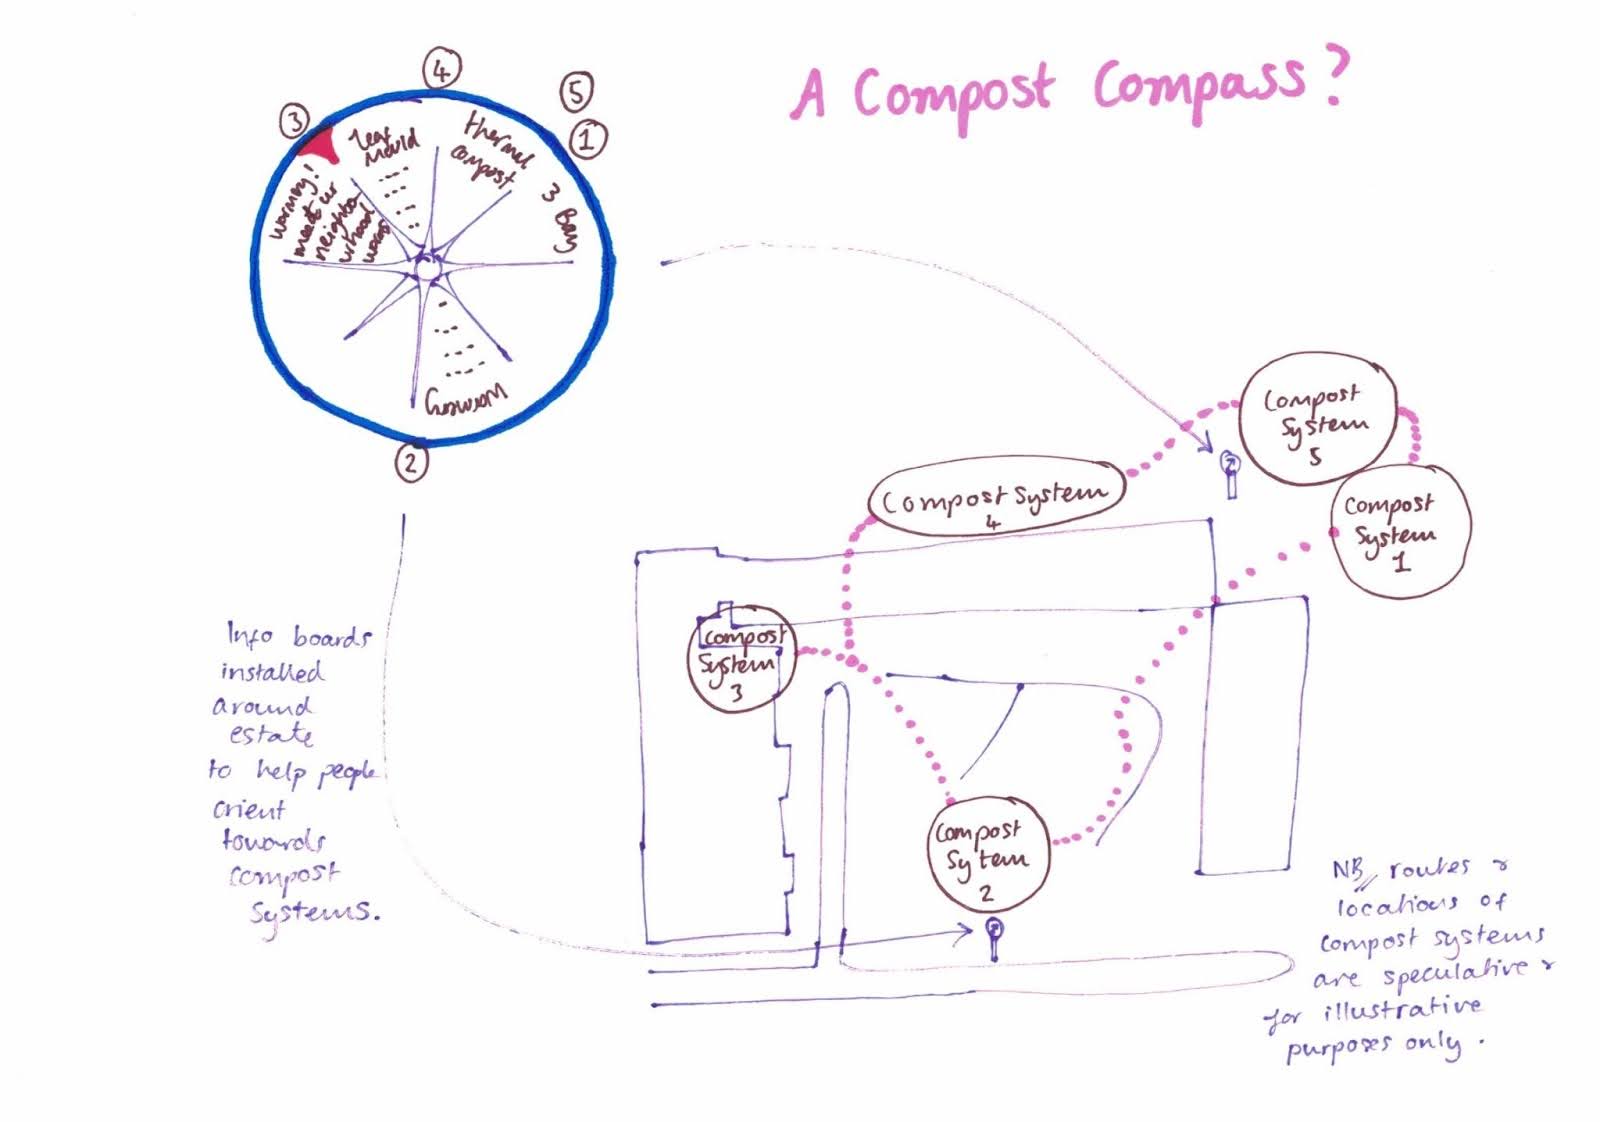 A Compost Compass?
4
5
3
1
Leaf
Mould
thermal
compost
3 Bay
worming!
meet ur
neighbo
urhood
Wormery
2
Compost
System
5
Compost System
4
Compost
System
1
Compost
System
3
Compost
Sytem
2
Info boards
installed
around
estate
to help people
orient
towards
compost
systems.
NB, routes &
locations of
compost systems
are speculative &
for illustrative
purposes only.